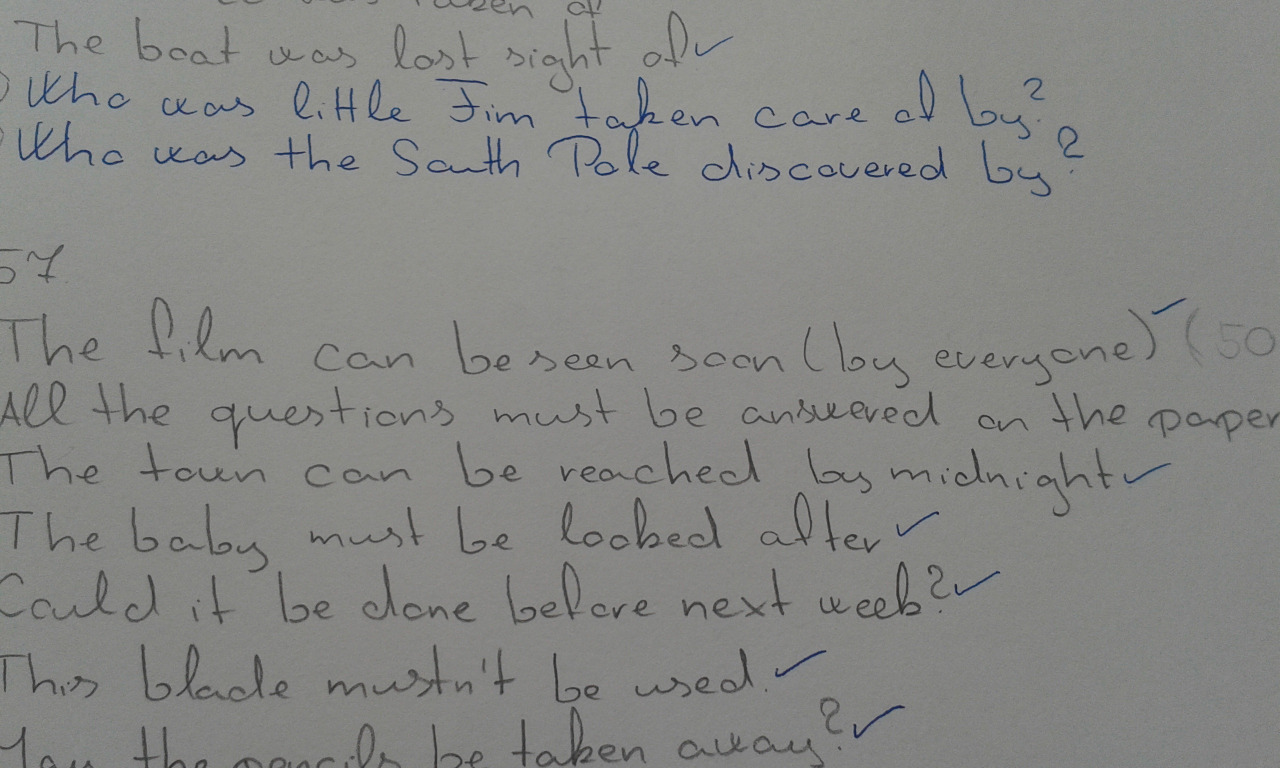 taken of
The boat was lost sight of
Who was little Jim taken care of by?
Who was the South Pole discovered by?
57
The film can be seen soon (by everyone) (50
All the questions must be answered on the paper
The town can be reached by midnight
The baby must be looked after
Could it be done before next week?
This blade mustn't be used.
May the pencils be taken away?